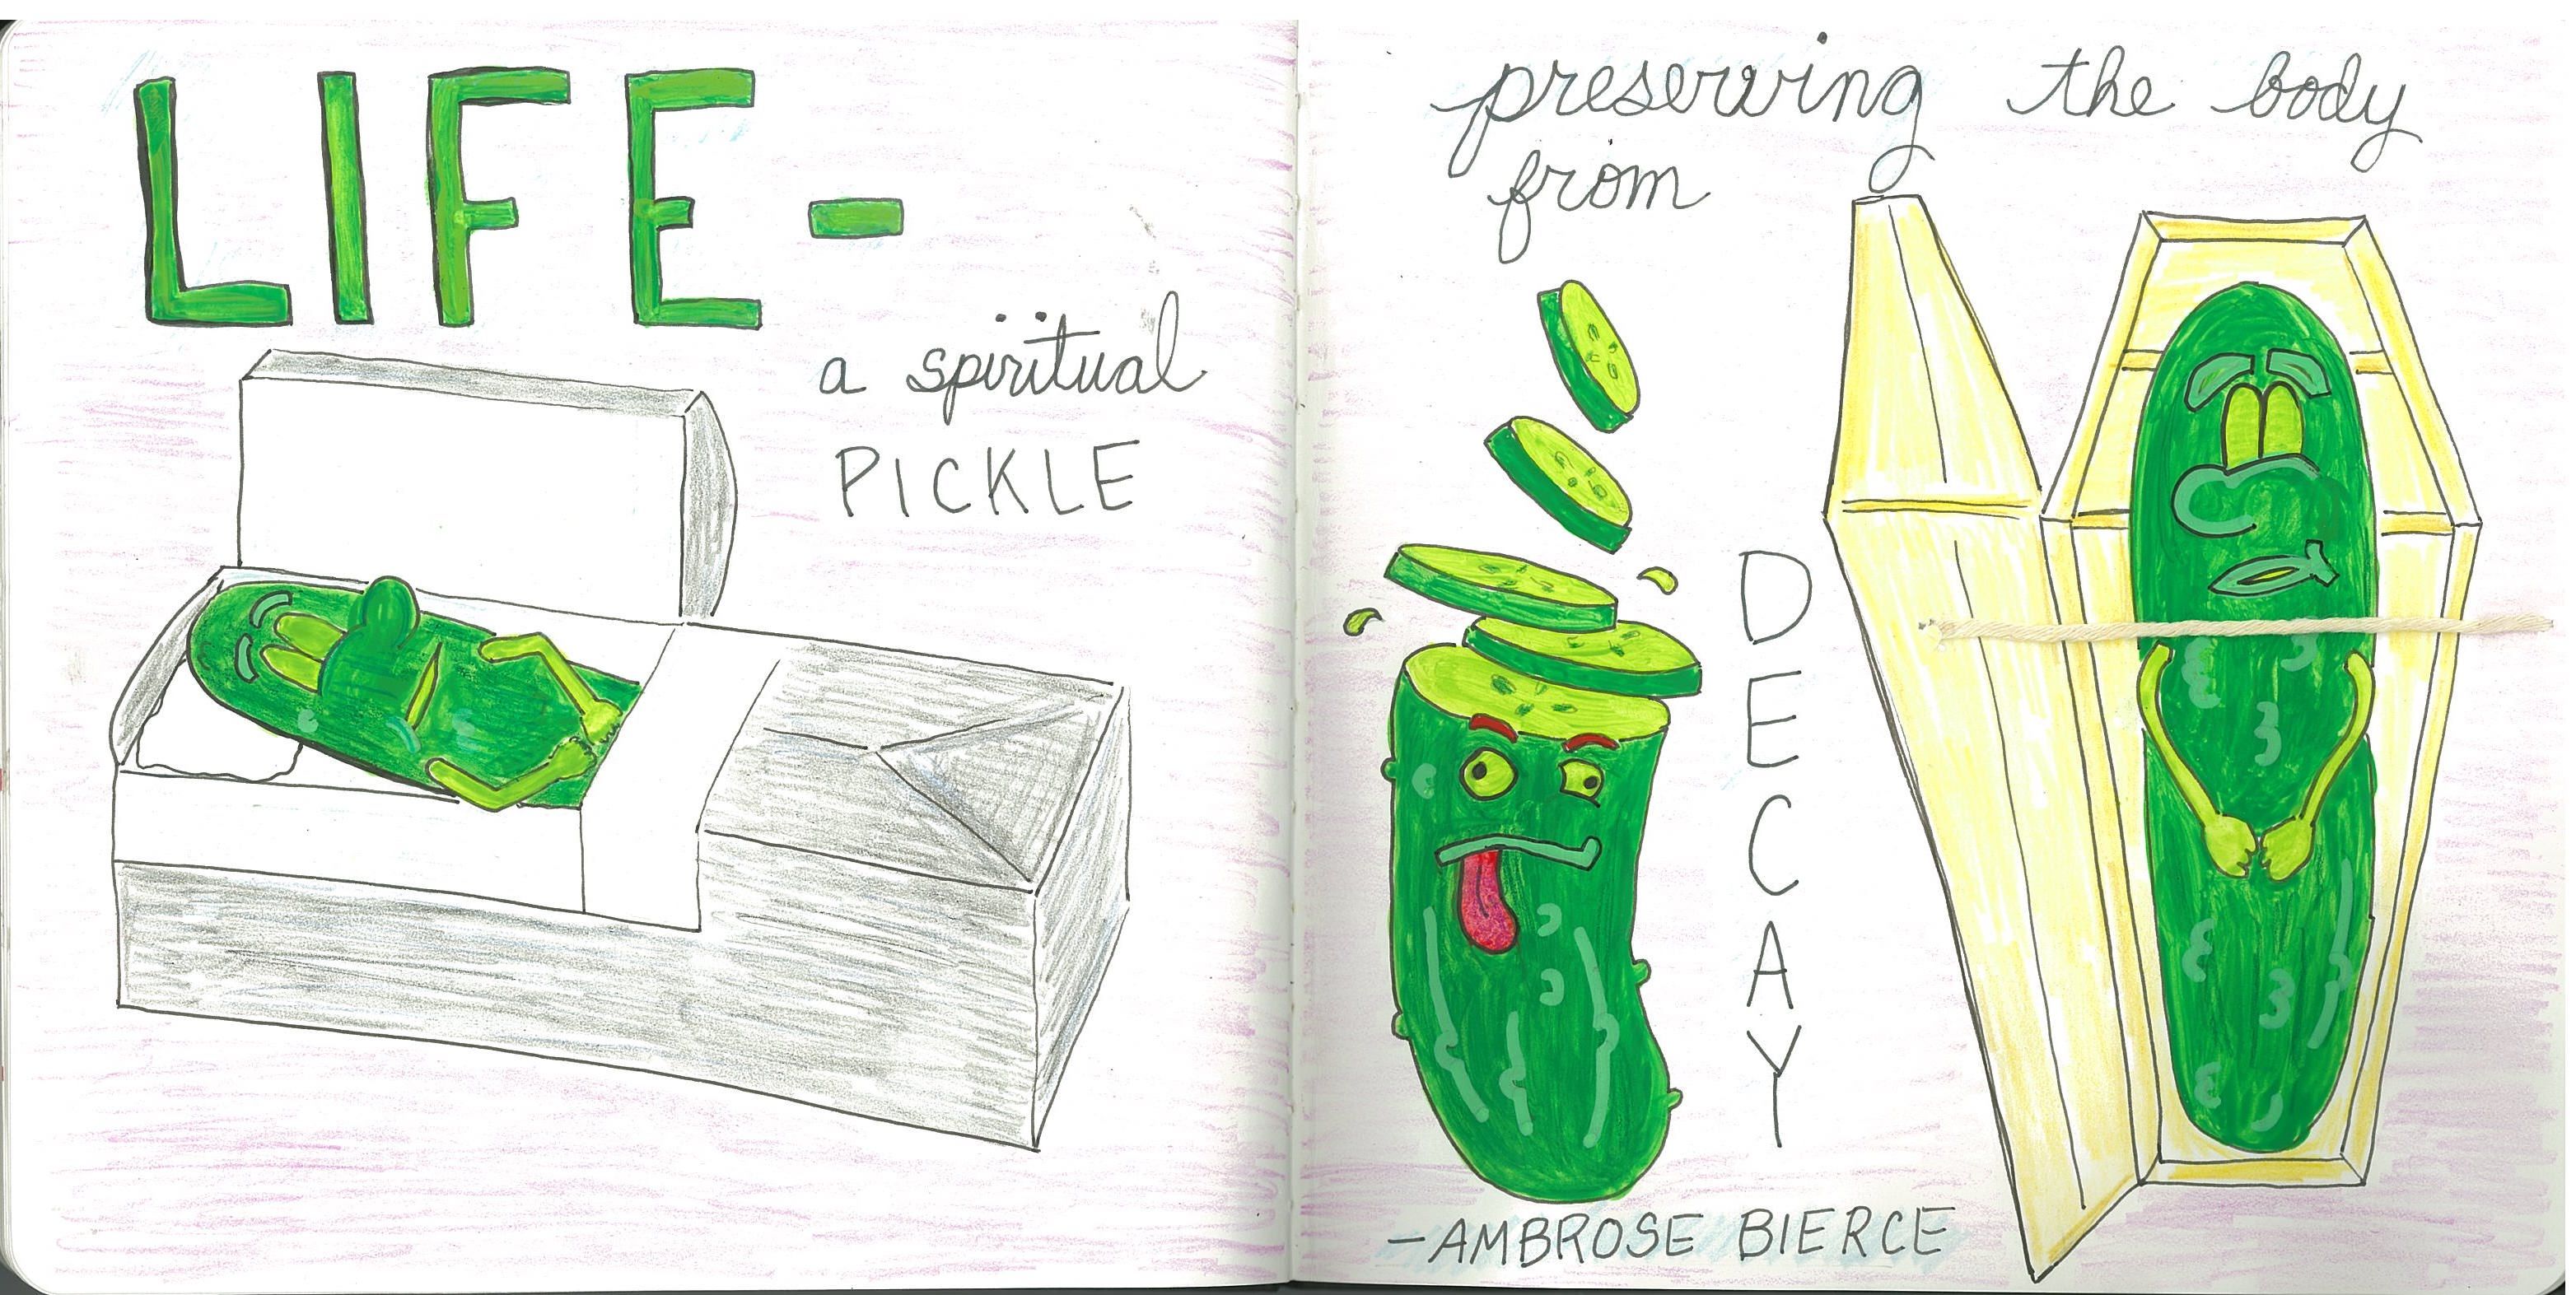 LIFE -
a spiritual
PICKLE
preserving the body
from
DECAY
-AMBROSE BIERCE